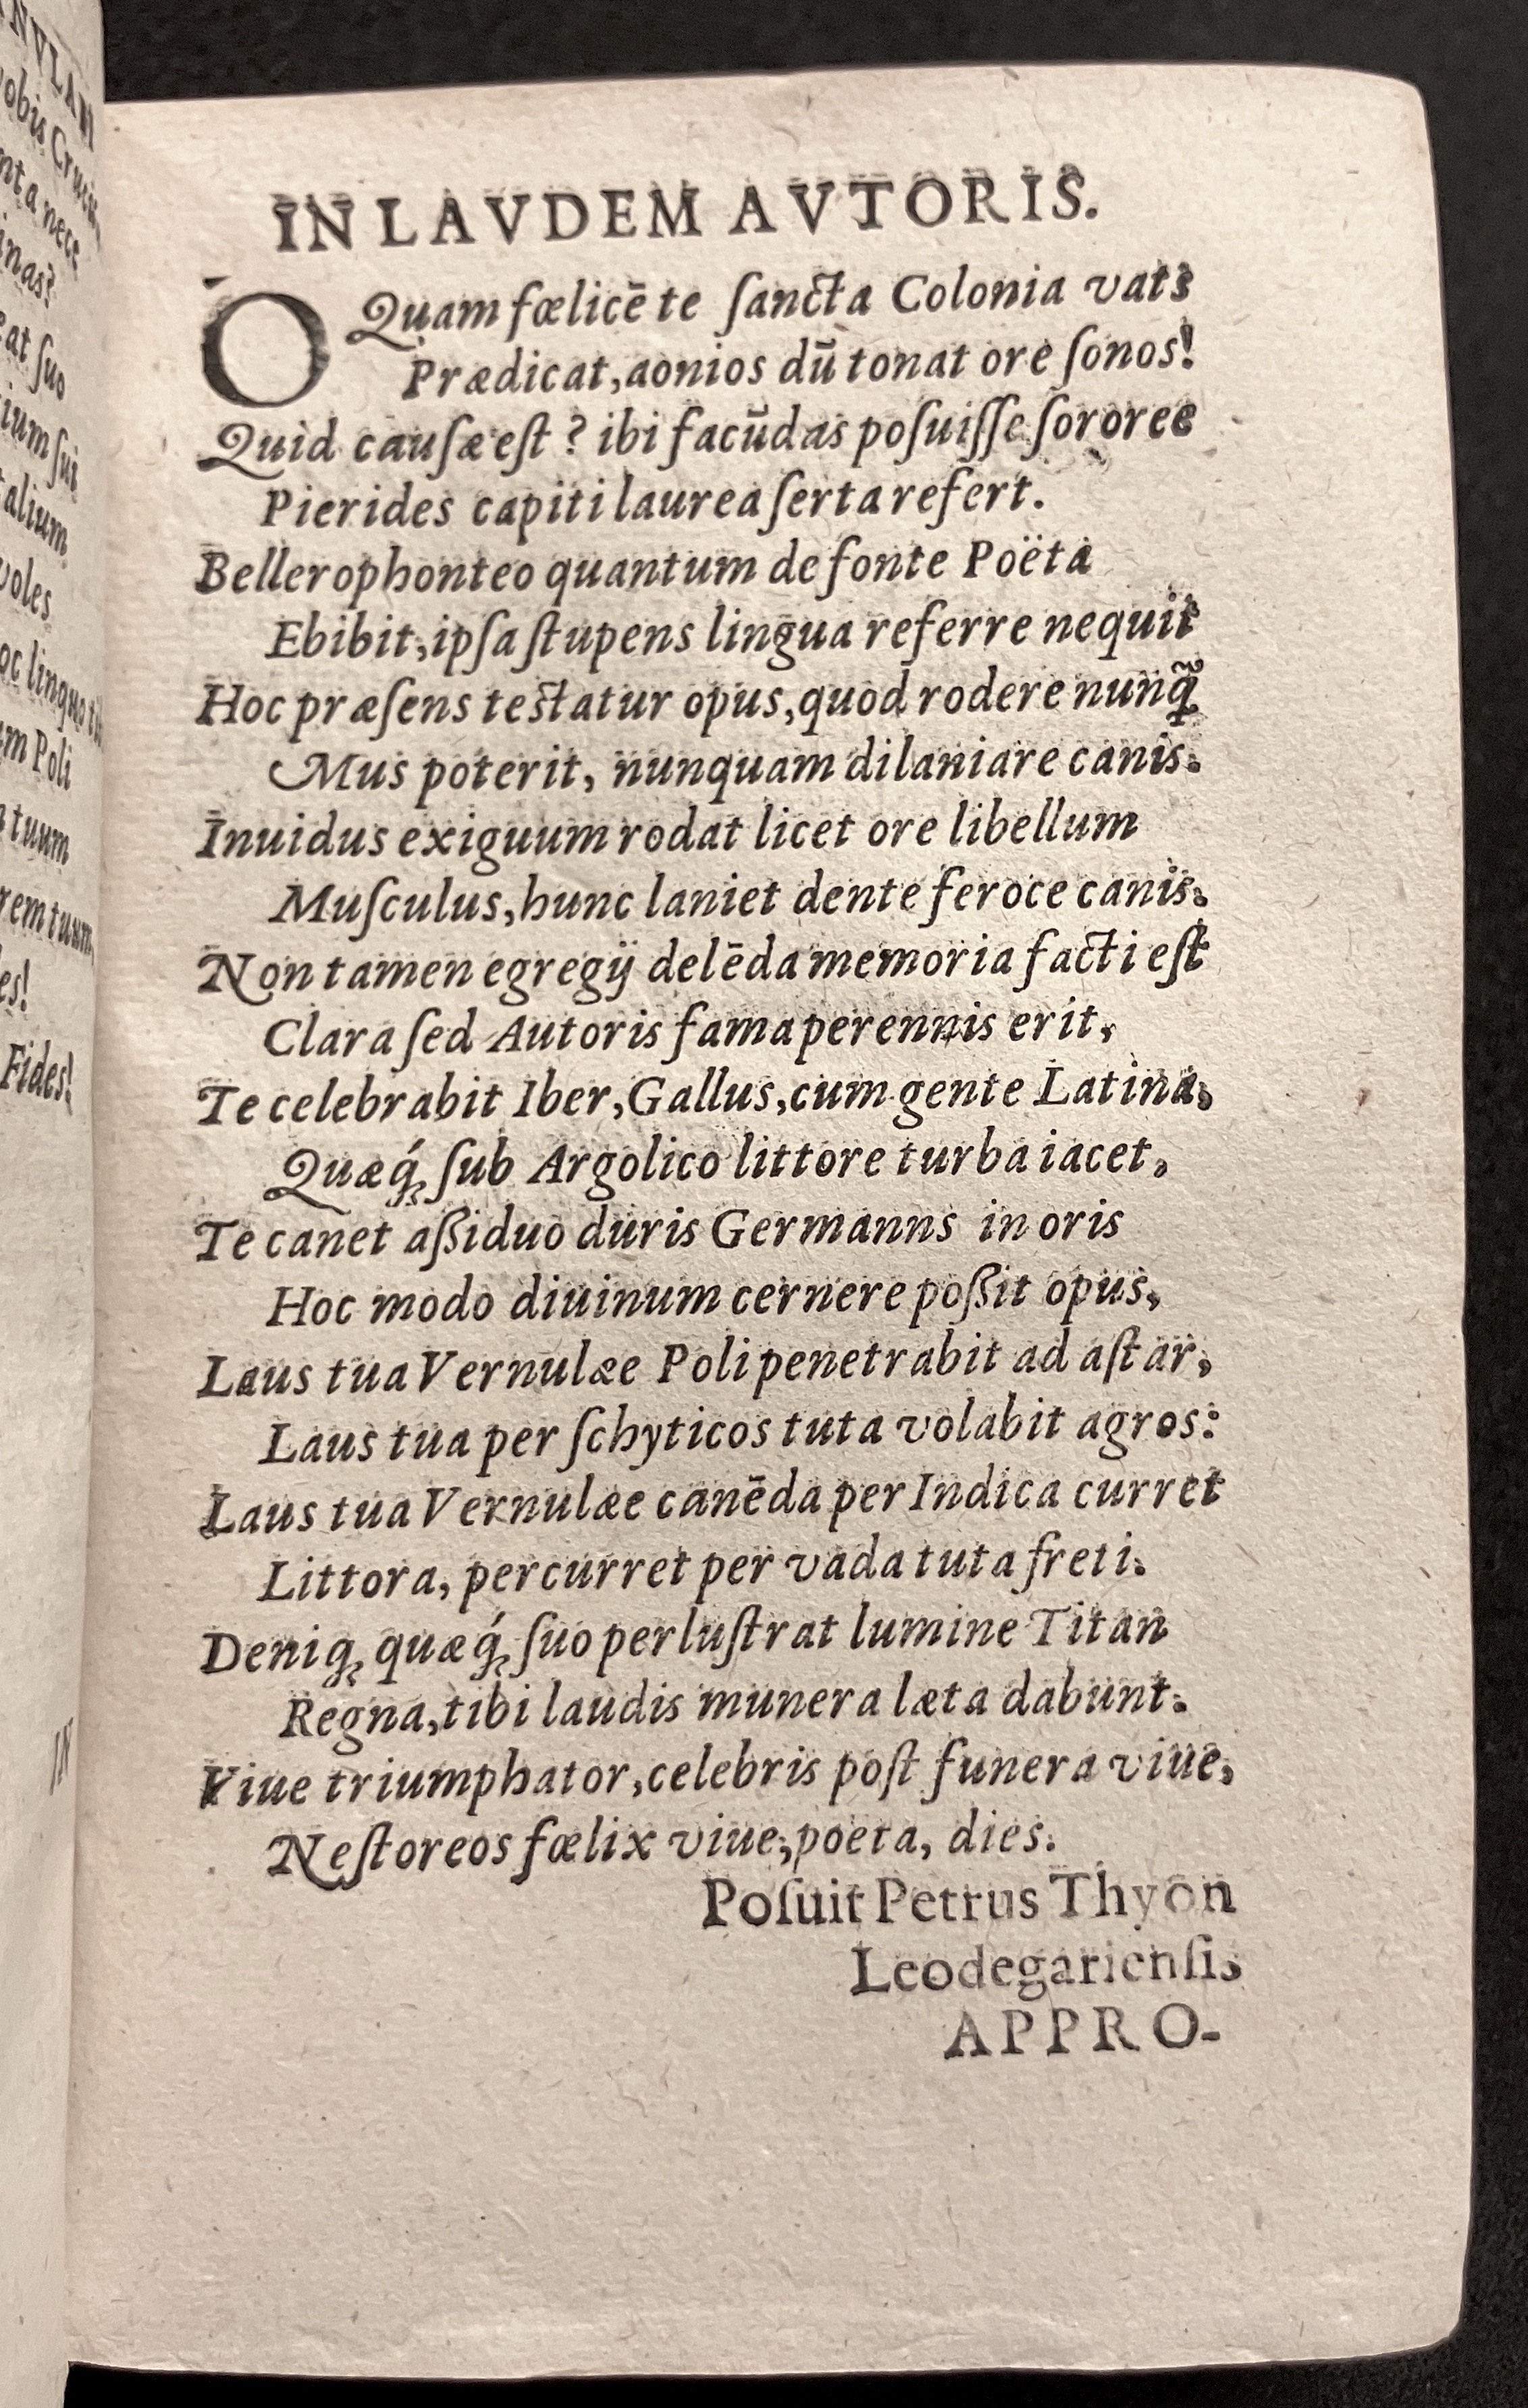 IN LAVDEM AVTORIS.
O Quam fœlicē te ſancta Colonia vats
Prædicat, aonios dū tonat ore ſonos!
Quid cauſæ eſt? ibi facūdas poſuiſſe ſororee
Pierides capiti laurea ſerta refert.
Bellerophonteo quantum de fonte Poëta
Ebibit, ipſa ſtupens lingua referre nequit
Hoc præſens teſtatur opus, quod rodere nunq̃
Mus poterit, nunquam dilaniare canis:
Inuidus exiguum rodat licet ore libellum
Muſculus, hunc laniet dente feroce canis:
Non tamen egregij delēda memoria facti eſt
Clara ſed Autoris fama perennis erit,
Te celebrabit Iber, Gallus, cum gente Latina,
Quæq́; ſub Argolico littore turba iacet,
Te canet aßiduo duris Germanns in oris
Hoc modo diuinum cernere poßit opus,
Laus tua Vernulæe Poli penetrabit ad aſtar,
Laus tua per ſchyticos tuta volabit agros:
Laus tua Vernulæe canēda per Indica curret
Littora, percurret per vada tuta freti:
Deniq; quæq́; ſuo perluſtrat lumine Titan
Regna, tibi laudis munera læta dabunt:
Viue triumphator, celebris poſt funera viue,
Neſtoreos fœlix viue, poeta, dies.
Poſuit Petrus Thyon
Leodegarienſis
APPRO-
NVLAM
obis
inas?
at ſuo
ium ſui
alium
voles
oc linquo
m Poli
tuum
rem tuum
es!
Fides!